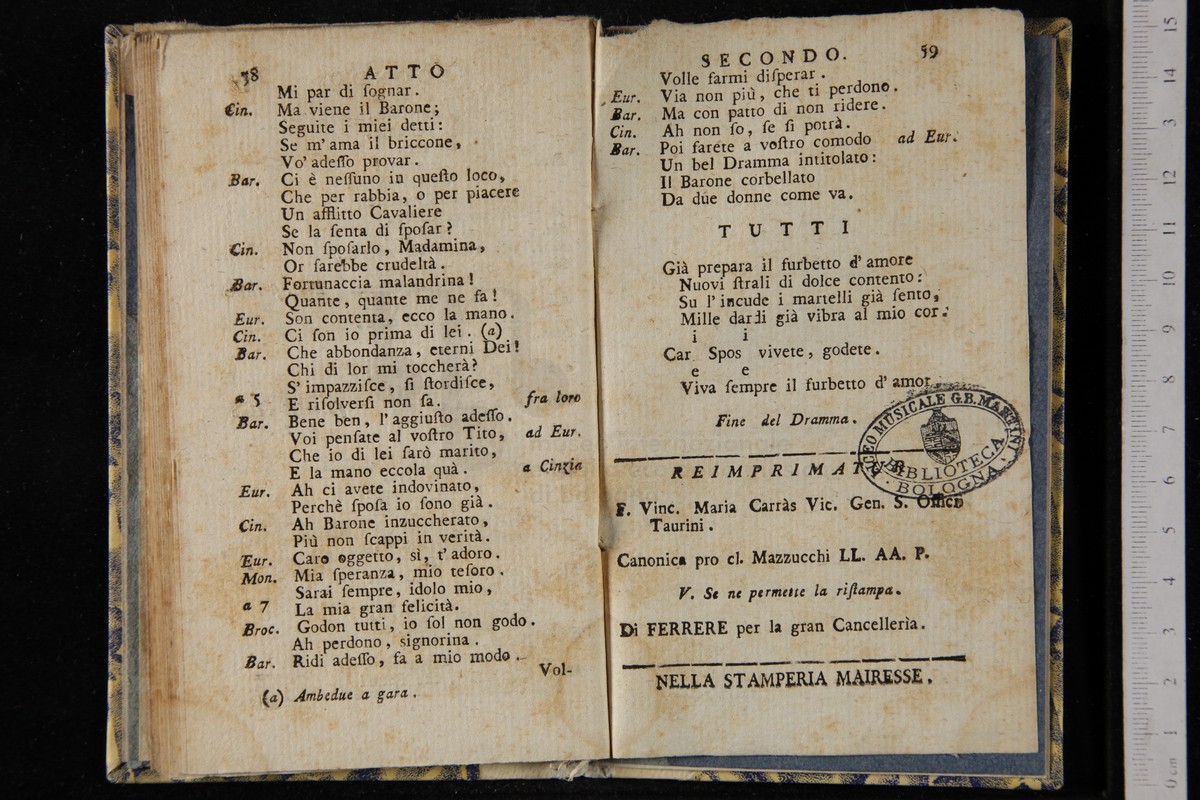 58 ATTO
Mi par di ſognar.
Cin. Ma viene il Barone;
Seguite i miei detti:
Se m'ama il briccone,
Vo' adeſſo provar.
Bar. Ci è neſſuno in queſto loco,
Che per rabbia, o per piacere
Un afflitto Cavaliere
Se la ſenta di ſpoſar?
Cin. Non ſpoſarlo, Madamina,
Or ſarebbe crudeltà.
Bar. Fortunaccia malandrina!
Quante, quante me ne fa!
Eur. Son contenta, ecco la mano.
Cin. Ci ſon io prima di lei. (a)
Bar. Che abbondanza, eterni Dei!
Chi di lor mi toccherà?
S'impazziſce, ſi ſtordiſce,
a 5 E riſolverſi non ſa. fra loro
Bar. Bene ben, l'aggiuſto adeſſo.
Voi penſate al voſtro Tito, ad Eur.
Che io di lei ſarò marito,
E la mano eccola quà. a Cinzia
Eur. Ah ci avete indovinato,
Perchè ſpoſa io ſono già.
Cin. Ah Barone inzuccherato,
Più non ſcappi in verità.
Eur. Caro oggetto, sì, t'adoro.
Mon. Mia ſperanza, mio teſoro.
Sarai ſempre, idolo mio,
a 7 La mia gran felicità.
Broc. Godon tutti, io ſol non godo.
Ah perdono, signorina.
Bar. Ridi adeſſo, fa a mio modo.
Vol-
(a) Ambedue a gara.
SECONDO. 59
Volle farmi diſperar.
Eur. Via non più, che ti perdono.
Bar. Ma con patto di non ridere.
Cin. Ah non ſo, ſe ſi potrà.
Bar. Poi farete a voſtro comodo ad Eur.
Un bel Dramma intitolato:
Il Barone corbellato
Da due donne come va.
TUTTI
Già prepara il furbetto d'amore
Nuovi ſtrali di dolce contento:
Su l'incude i martelli già ſento,
Mille dardi già vibra al mio cor.
i i
Car Spos vivete, godete.
e e
Viva ſempre il furbetto d'amor
Fine del Dramma.
LICEO MUSICALE G.B. MARTINI
BIBLIOTECA
BOLOGNA
REIMPRIMATUR
F. Vinc. Maria Carràs Vic. Gen. S. Officii
Taurini.
Canonica pro cl. Mazzucchi LL. AA. P.
V. Se ne permette la riſtampa.
Di FERRERE per la gran Cancelleria.
NELLA STAMPERIA MAIRESSE.
15
14
3
12
11
10
9
8
7
6
5
4
3
2
1
0 cm